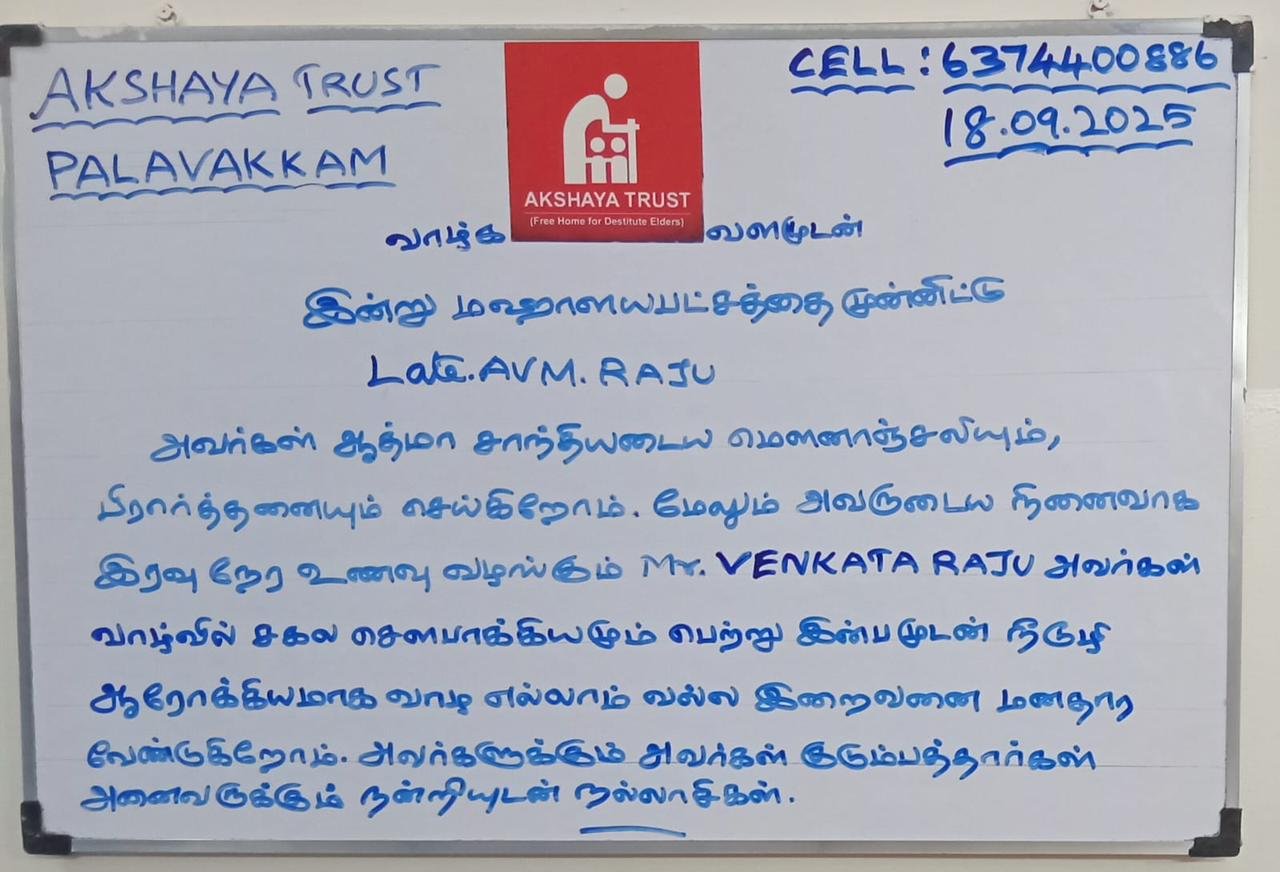 AKSHAYA TRUST
PALAVAKKAM
AKSHAYA TRUST
(Free Home for Destitute Elders)
CELL : 6374400886
18.09.2025
வாழ்க வளமுடன்
இன்று மஹாளயபட்சத்தை முன்னிட்டு
Late. AVM. RAJU
அவர்கள் ஆத்மா சாந்தியடைய மௌனாஞ்சலியும்,
பிரார்த்தனையும் செய்கிறோம். மேலும் அவருடைய நினைவாக
இரவு நேர உணவு வழங்கும் Mr. VENKATA RAJU அவர்கள்
வாழ்வில் சகல சௌபாக்கியமும் பெற்று இன்பமுடன் நீடுழி
ஆரோக்கியமாக வாழ எல்லாம் வல்ல இறைவனை மனதார
வேண்டுகிறோம். அவர்களுக்கும் அவர்கள் குடும்பத்தார்கள்
அனைவருக்கும் நன்றியுடன் நல்லாசிகள்.